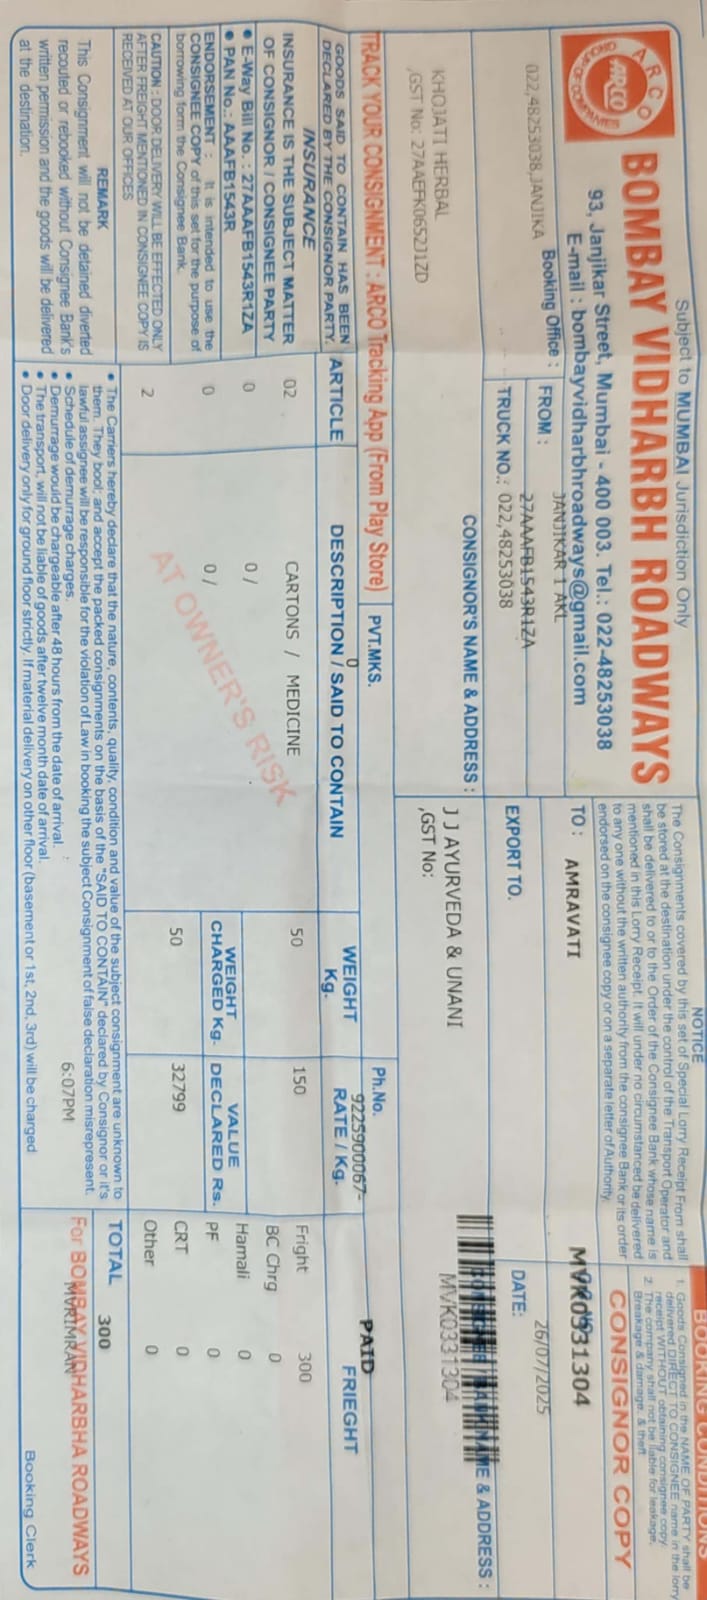 Subject to MUMBAI Jurisdiction Only
ARCO
ARCO
GROUP OF COMPANIES
BOMBAY VIDHARBH ROADWAYS
93, Janjikar Street, Mumbai - 400 003. Tel.: 022-48253038
E-mail : bombayvidharbhroadways@gmail.com
NOTICE
The Consignments covered by this set of Special Lorry Receipt From shall
be stored at the destination under the control of the Transport Operator and
shall be delivered to or to the Order of the Consignee Bank whose name is
mentioned in this Lorry Receipt. It will under no circumstanced be delivered
to any one without the written authority from the consignee Bank or its order
endorsed on the consignee copy or on a separate letter of Authority.
BOOKING CONDITIONS
1. Goods Consigned in the NAME OF PARTY shall be
delivered DIRECT TO CONSIGNEE name in the lorry
receipt WITHOUT obtaining consignee copy.
2. The company shall not be liable for leakage,
Breakage & damage, & theft
CONSIGNOR COPY
Booking Office :
022,48253038,JANJIKA
FROM :
JANJIKAR 1 AKL
27AAAFB1543R1ZA
TRUCK NO.: 022,48253038
TO : AMRAVATI
EXPORT TO.
MVK0331304
DATE:
26/07/2025
CONSIGNOR'S NAME & ADDRESS :
KHOJATI HERBAL
,GST No: 27AAEFK0652J1ZD
NAME & ADDRESS :
J J AYURVEDA & UNANI
,GST No:
MVK0331304
TRACK YOUR CONSIGNMENT : ARCO Tracking App (From Play Store)
PVT.MKS.
0
Ph.No.
9225900067-
PAID
GOODS SAID TO CONTAIN HAS BEEN
DECLARED BY THE CONSIGNOR PARTY.
ARTICLE
DESCRIPTION / SAID TO CONTAIN
WEIGHT
Kg.
RATE / Kg.
FRIEGHT
INSURANCE
INSURANCE IS THE SUBJECT MATTER
OF CONSIGNOR / CONSIGNEE PARTY
• E-Way Bill No. : 27AAAFB1543R1ZA
• PAN No.: AAAFB1543R
ENDORSEMENT : It is intended to use the
CONSIGNEE COPY of this set for the purpose of
borrowing form the Consignee Bank.
CAUTION : DOOR DELIVERY WILL BE EFFECTED ONLY
AFTER FREIGHT MENTIONED IN CONSIGNEE COPY IS
RECEIVED AT OUR OFFICES
02
0
0
2
CARTONS / MEDICINE
0 /
0 /
AT OWNER'S RISK
50
150
WEIGHT
CHARGED Kg.
VALUE
DECLARED Rs.
50
32799
Fright 300
BC Chrg 0
Hamali 0
PF 0
CRT 0
Other 0
TOTAL 300
REMARK
This Consignment will not be detained diverted
recouted or rebooked without Consignee Bank's
written permission and the goods will be delivered
at the destination.
• The Carriers hereby declare that the nature, contents, quality, condition and value of the subject consignment are unknown to
them. They bool; and accept the packed consignments on the basis of the "SAID TO CONTAIN" declared by Consignor or it's
lawful assignee will be responsible for the violation of Law in booking the subject Consignment of false declaration misrepresent.
• Schedule of demurrage charges.
• Demurrage would be chargeable after 48 hours from the date of arrival.
• The transport, will not be liable of goods after twelve month date of arrival.
• Door delivery only for ground floor strictly. If material delivery on other floor (basement or 1st, 2nd, 3rd) will be charged
6:07PM
For BOMBAY VIDHARBHA ROADWAYS
MVRIMRAN
Booking Clerk